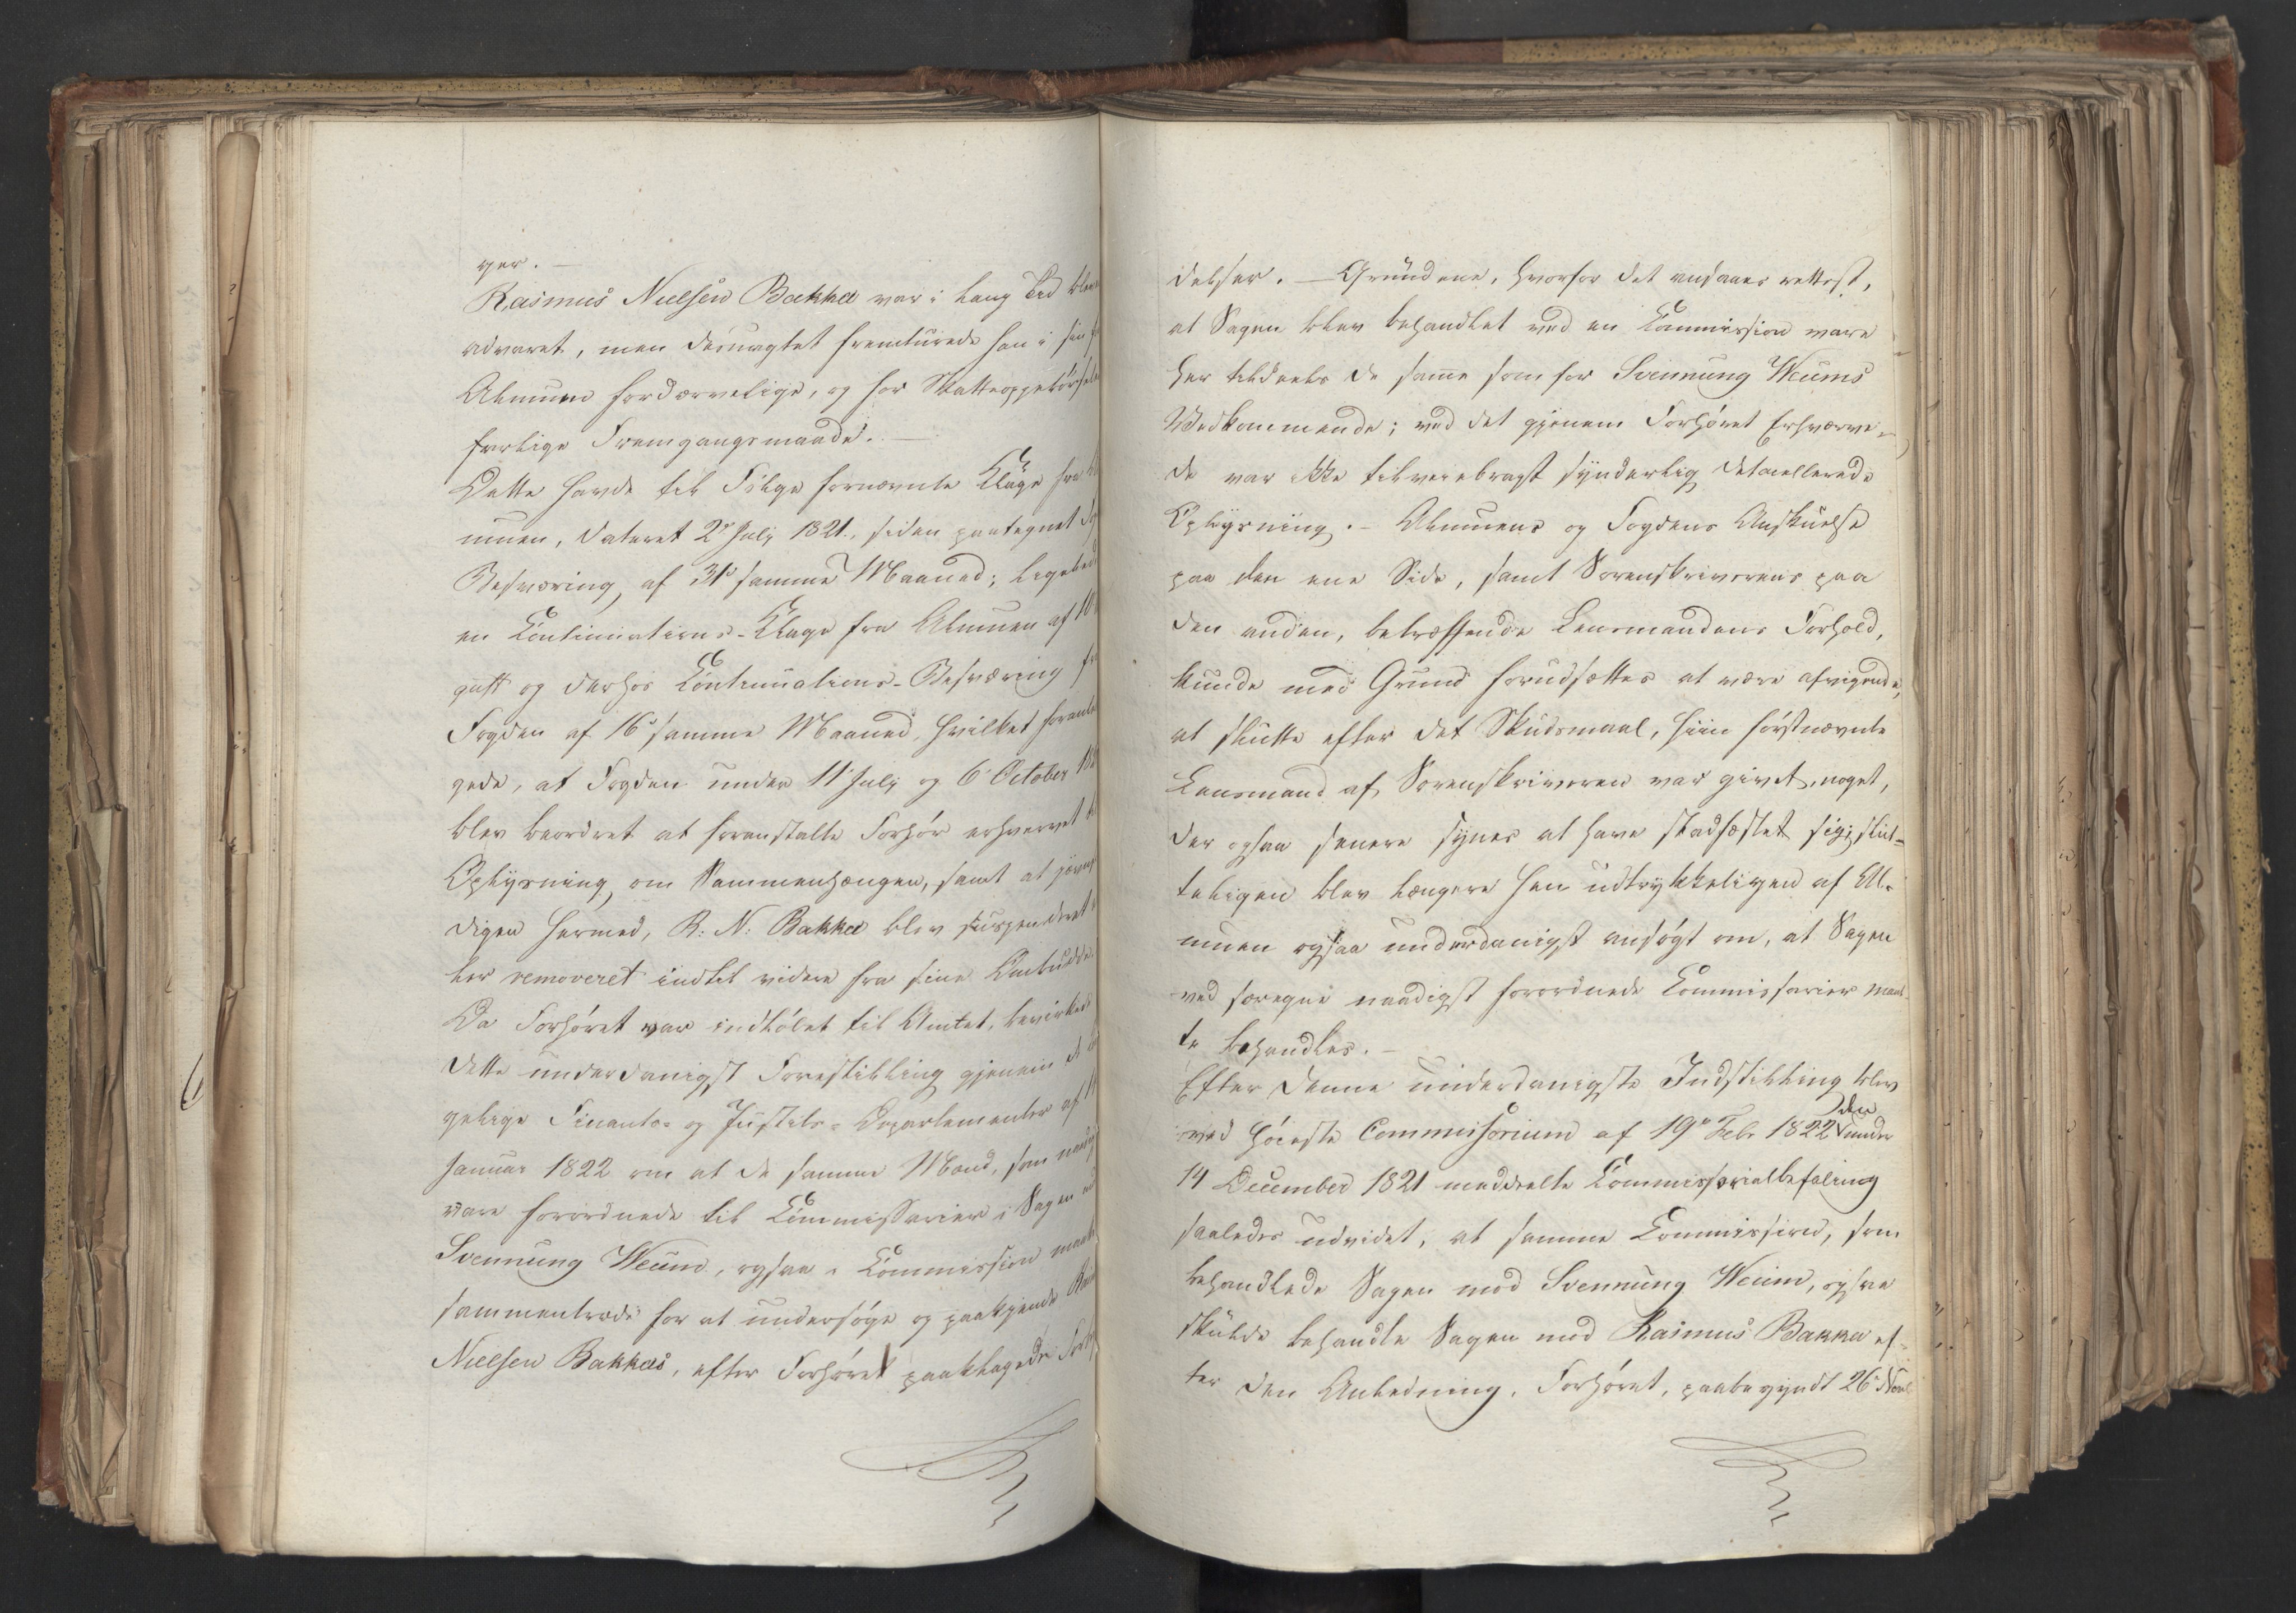 ger. —
Rasmus Nielsen Bakka var i lang Tid blev
advaret, men desuagtet fremturede han i sin
Almuen fordærvelige, og for Skatteoppebørsele
farlige Fremgangsmaade. —
Dette havde til Følge fornævnte Klage fra
muen, dateret 2den July 1821, siden paategnet
Besværing, af 31te samme Maaned; ligeledes
en Continuations-Klage fra Almuen af 10
gust og derhos Continuations-Besværing fra
Fogden af 16de samme Maaned, hvilket foranle
gede, at Fogden under 11te July og 6te October 182
blev beordret at foranstalte Forhør erhvervet
Oplysning om Sammenhængen, samt at jævn
digen hermed, R: N: Bakka blev suspenderet
ler removeret indtil videre fra sine Ombudde.
Da Forhøret var indkølet til Amtet, bevirkede
dette underdanigst Forestilling gjennem de
gelige Finants- og Justits-Departementer af
Januar 1822 om at de samme Mænd, som naadigst
vare forordnede til Commissarier i Sagen mod
Svennung Weum, ogsaa i Commission maatte
sammentræde for at undersøge og paakjende
Nielsen Bakkas, efter Forhøret paaklagede
delser. — Grundene, hvorfor det ansaaes rettest,
at Sagen blev behandlet ved en Commission vare
her tildeels de samme som for Svennung Weums
Vedkommende; ved det gjennem Forhøret Erhverve-
de var ikke tilveiebragt synderlig detaillerede
Oplysning. – Almuens og Fogdens Anskuelse
paa den ene Side, samt Sorenskriverens paa
den anden, betræffende Lensmandens Forhold,
kunde med Grund forudsættes at være afvigende,
at slutte efter det Skudsmaal, hiin førstnævnte
Lensmand af Sorenskriveren var givet, noget,
der ogsaa senere synes at have stadfæstet sig; slut-
teligen blev længere hen udtrykkeligen af Al-
muen ogsaa underdanigst ansøgt om, at Sagen
ved særegne naadigst forordnede Commissarier maat-
te behandles. –
Efter denne underdanigste Indstilling blev
ved høieste Commissorium af 19de Febr 1822 den under
14 December 1821 meddeelte Commissorialbefaling
saaledes udvidet, at samme Commission, som
behandlede Sagen mod Svennung Weum, ogsaa
skulde behandle Sagen mod Rasmus Bakka ef-
ter den Anledning, Forhøret, paabegyndt 26de